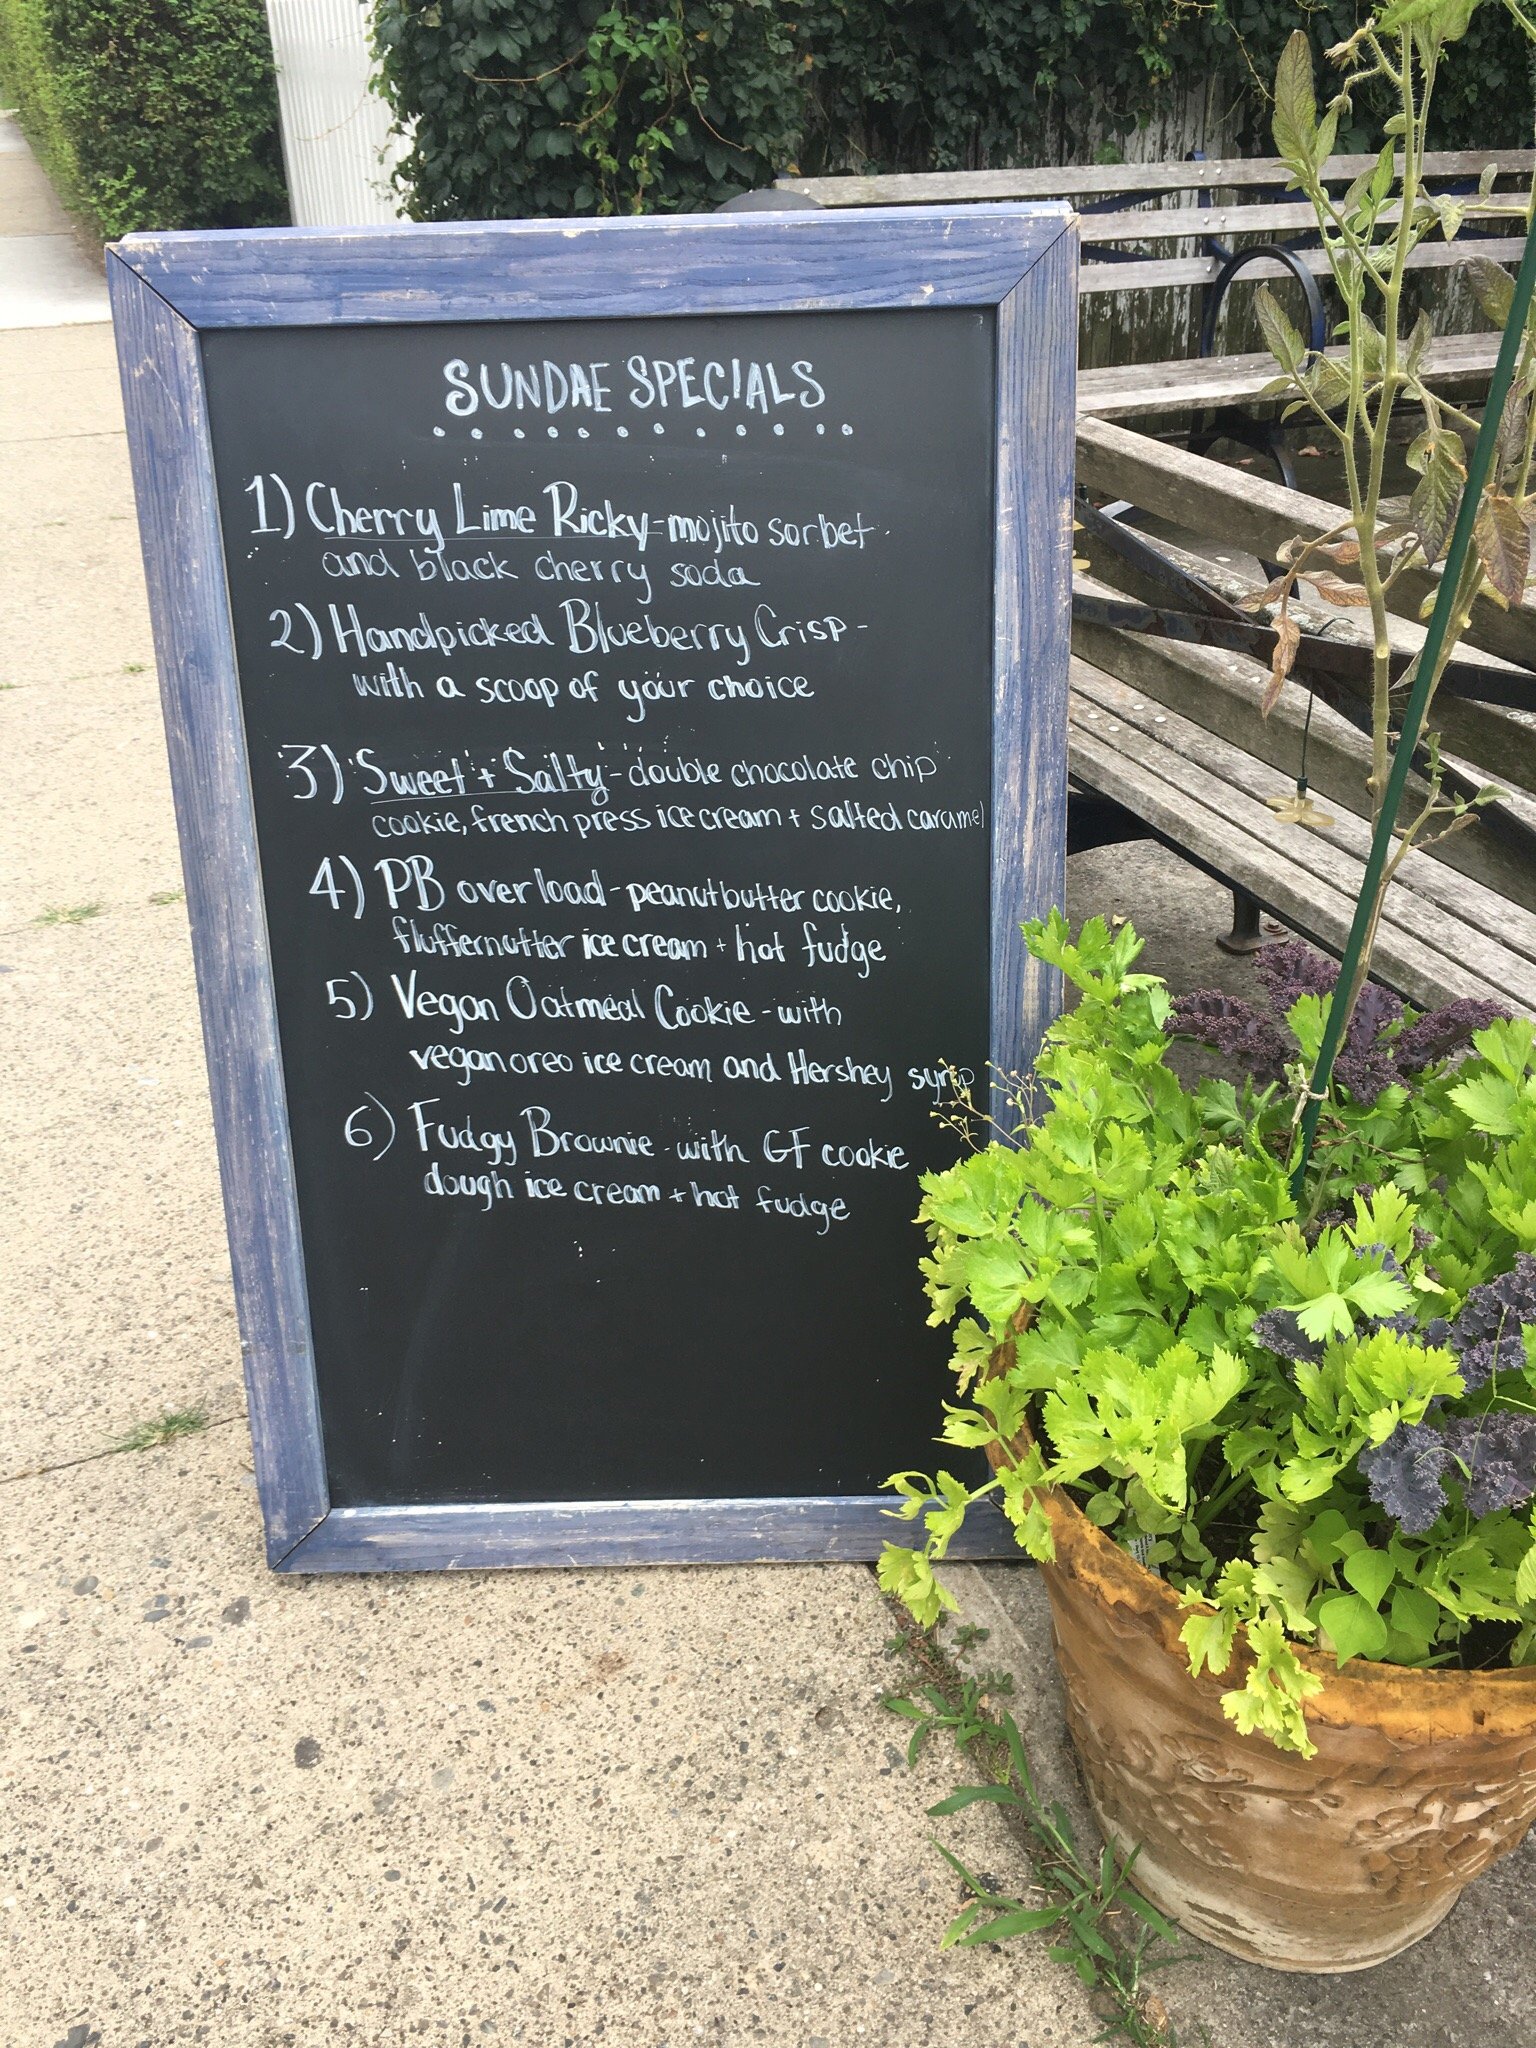 SUNDAE SPECIALS
1) Cherry Lime Ricky - mojito sorbet
and black cherry soda
2) Handpicked Blueberry Crisp -
with a scoop of your choice
3) Sweet + Salty - double chocolate chip
cookie, french press ice cream + salted caramel
4) PB overload - peanut butter cookie,
fluffernutter ice cream + hot fudge
5) Vegan Oatmeal Cookie - with
vegan oreo ice cream and Hershey syrup
6) Fudgy Brownie - with GF cookie
dough ice cream + hot fudge